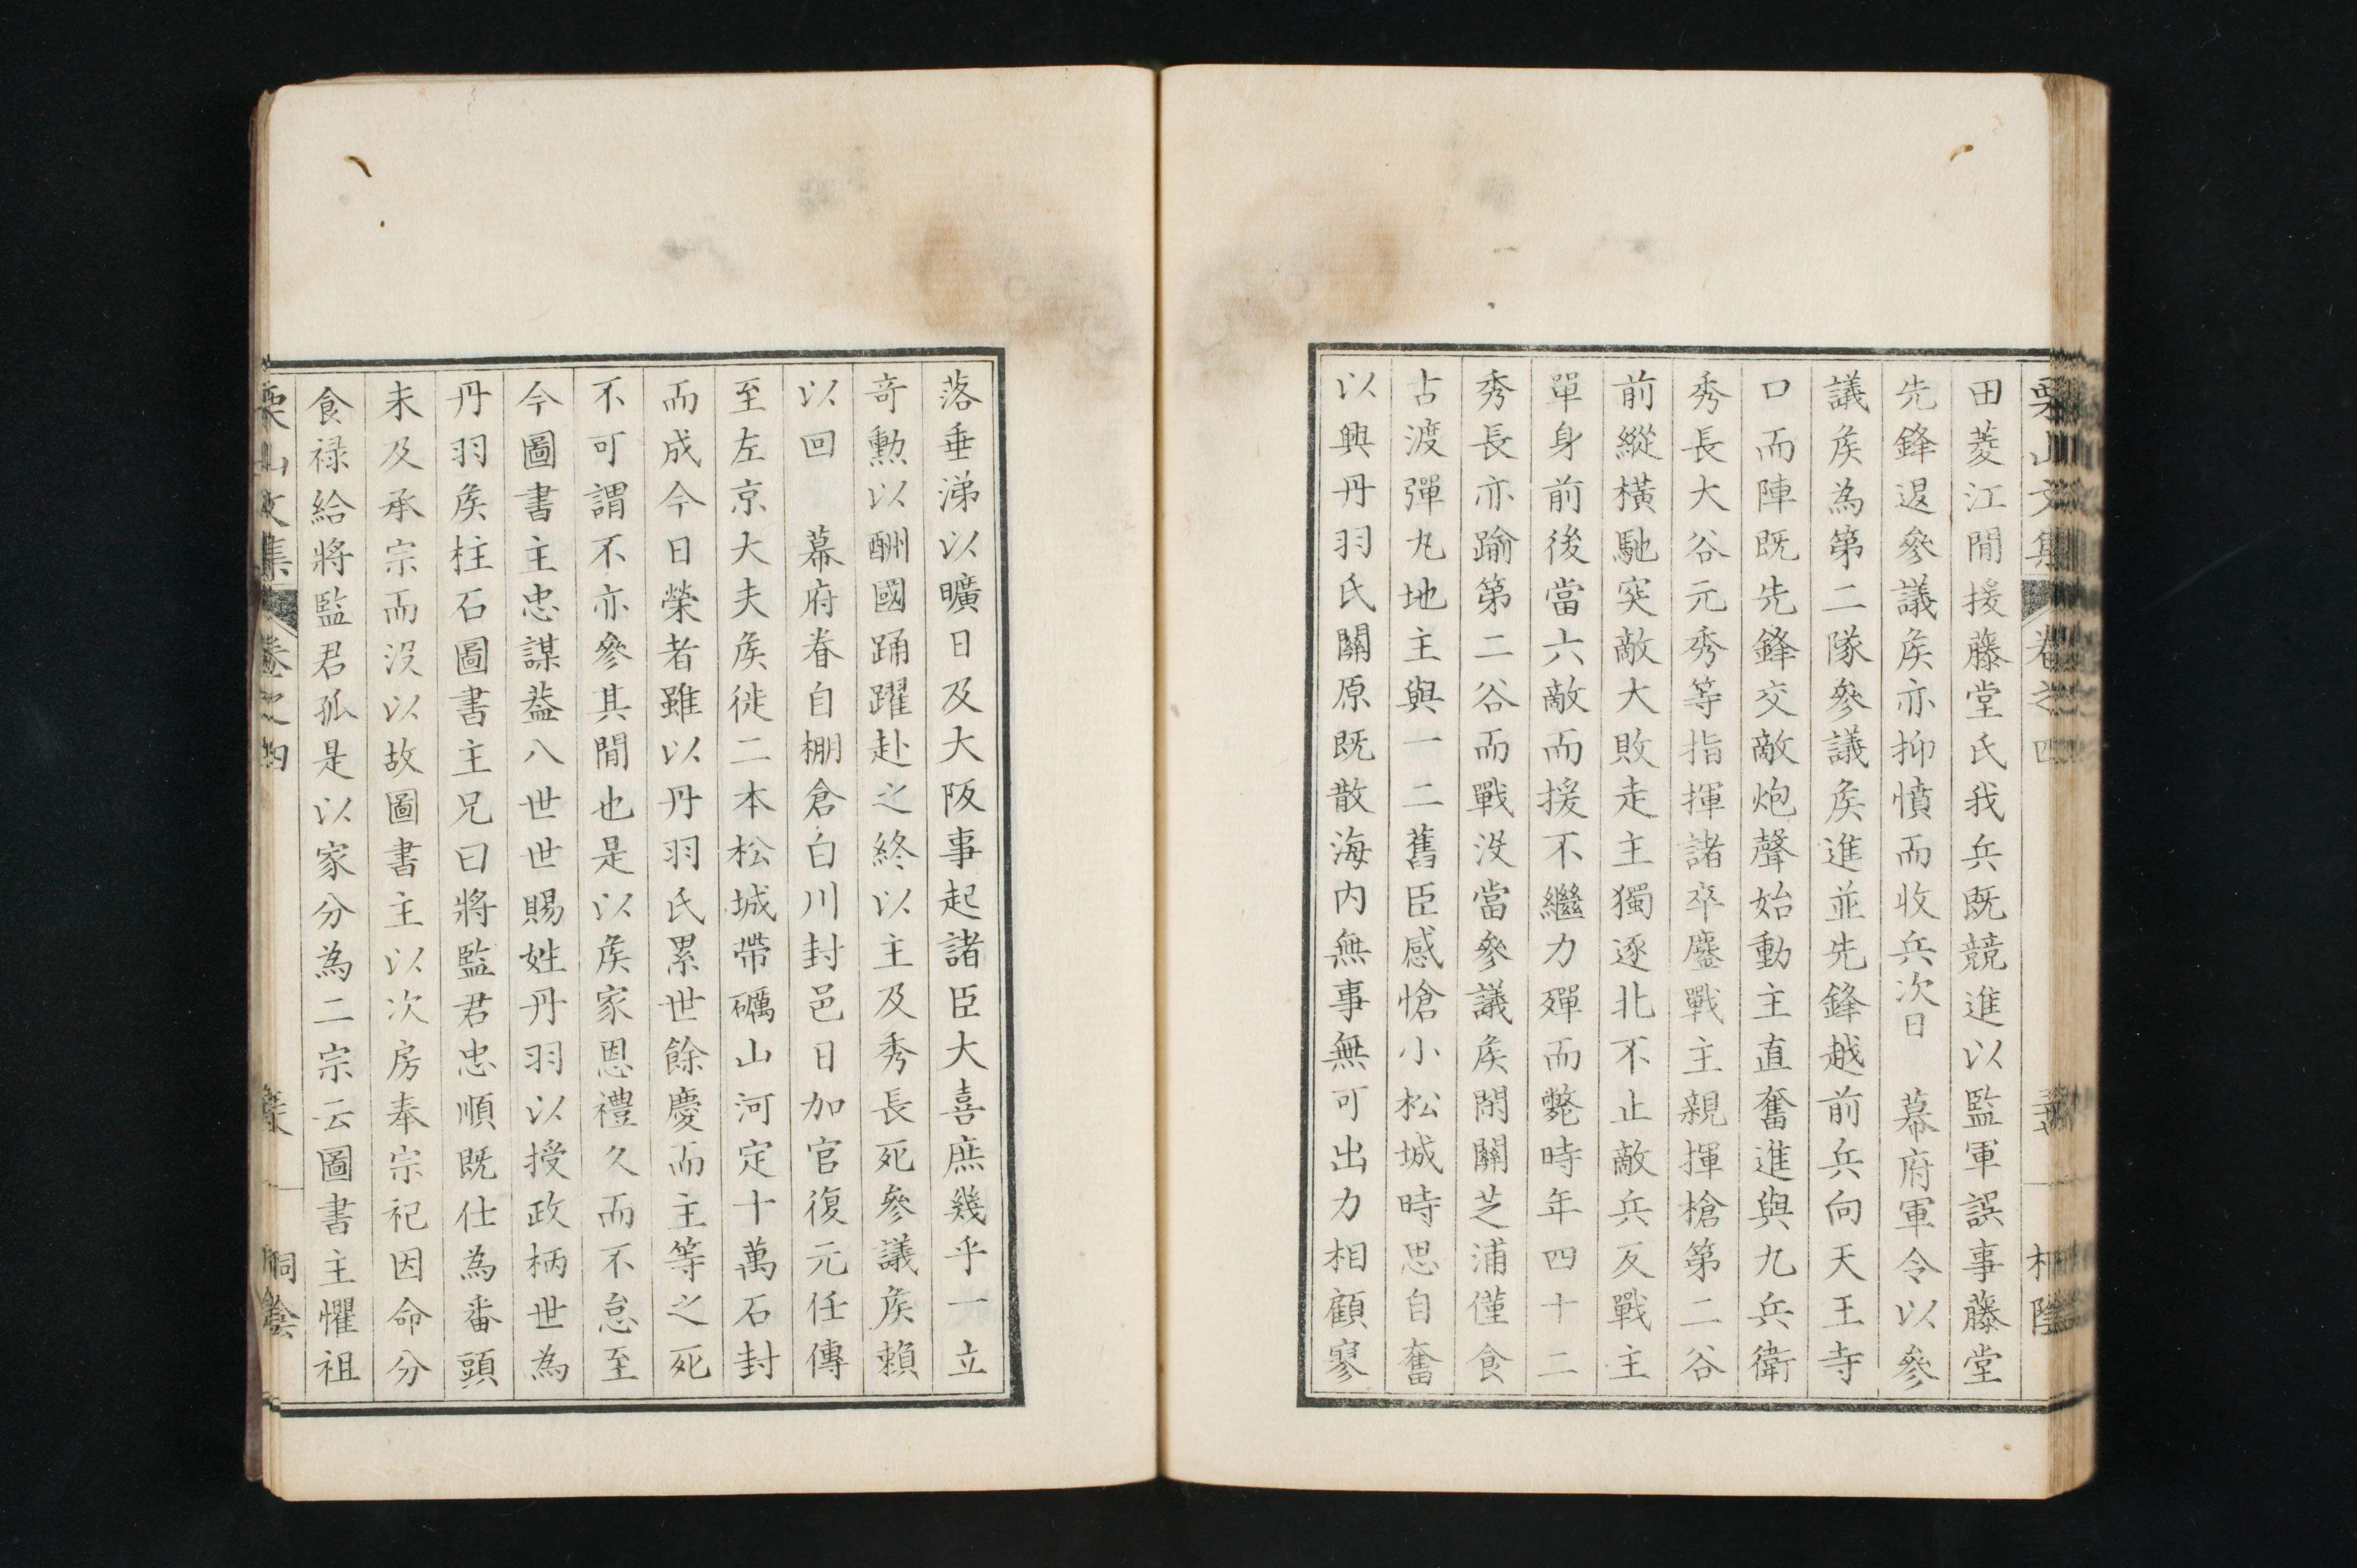 栗山文集 卷之四
田菱江閒援藤堂氏我兵既競進以監軍誤事藤堂
先鋒退參議矦亦抑憤而收兵次日　幕府軍令以參
議矦為第二隊參議矦進並先鋒越前兵向天王寺
口而陣既先鋒交敵炮聲始動主直奮進與九兵衛
秀長大谷元秀等指揮諸卒鏖戰主親揮槍第二谷
前縱橫馳突敵大敗走主獨逐北不止敵兵反戰主
單身前後當六敵而援不繼力殫而斃時年四十二
秀長亦踰第二谷而戰没當參議矦閉關芝浦僅食
古渡彈丸地主與一二舊臣感愴小松城時思自奮
以興丹羽氏關原既散海內無事無可出力相顧寥
落垂涕以曠日及大阪事起諸臣大喜庶幾乎一立
奇勲以酬國踊躍赴之終以主及秀長死參議矦賴
以回　幕府眷自棚倉白川封邑日加官復元任傳
至左京大夫矦徙二本松城帶礪山河定十萬石封
而成今日榮者雖以丹羽氏累世餘慶而主等之死
不可謂不亦參其閒也是以矦家恩禮久而不怠至
今圖書主忠謀葢八世世賜姓丹羽以授政柄世為
丹羽矦柱石圖書主兄曰將監君忠順既仕為番頭
未及承宗而没以故圖書主以次房奉宗祀因命分
食祿給將監君孤是以家分為二宗云圖書主懼祖
栗山文集 卷之四
桐陰